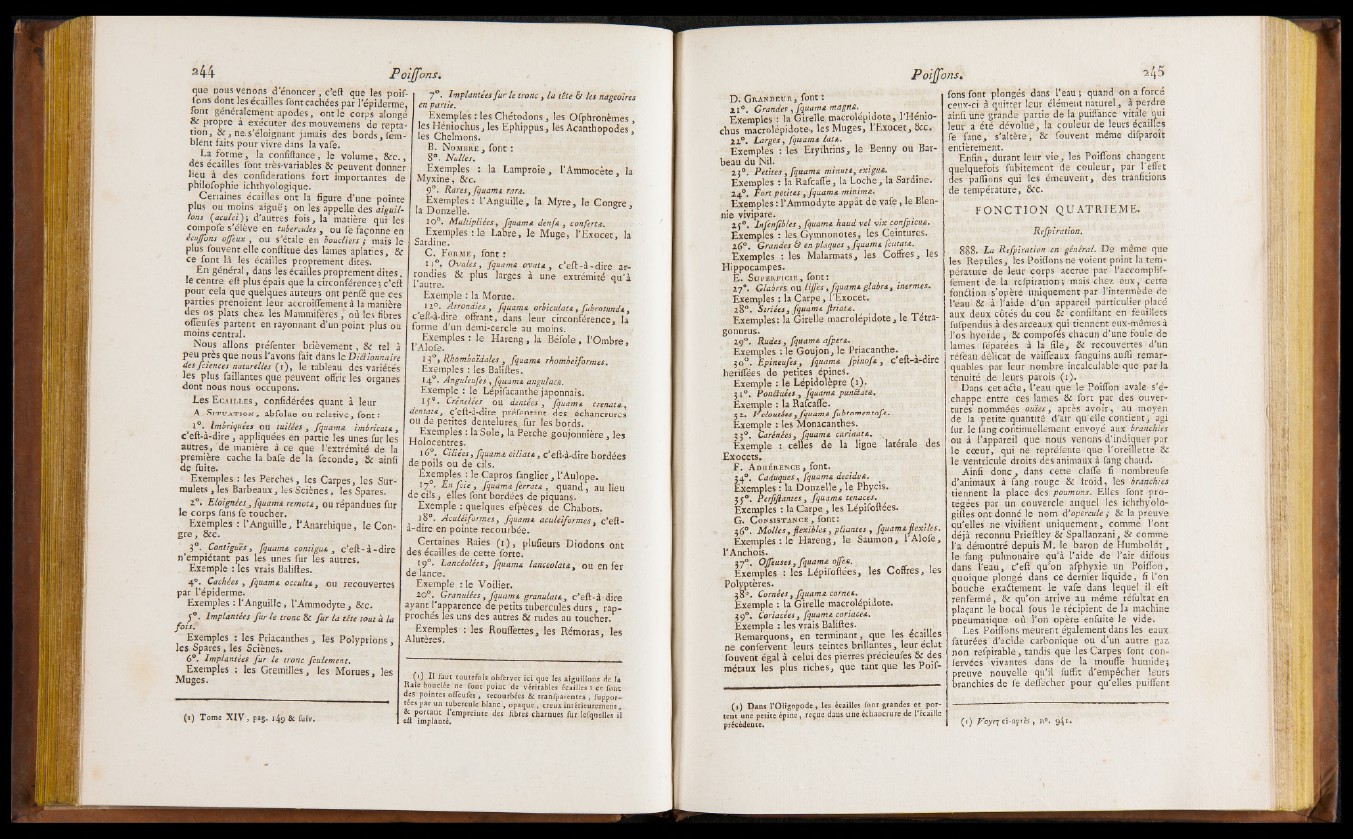 244
Poiſſons.
que nous venons d'énoncer, c'eſt que les poiſ-
ſons dont les écailles ſont cachées par l'épiderme,
ſont généralement apodes, ont le corps alongé
& propre à exécuter des mouvemens de repta-
tion, &, ne s'éloignant jamais des bords, ſem-
blent faits pour vivre dans la vaſe.
La forme, la conſiſtance, le volume, &c.,
des écailles ſont très-variables & peuvent donner
lieu à des conſidérations fort importantes de
philoſophie ichthyologique.
Certaines écailles ont la figure d'une pointe
plus ou moins aiguë; on les appelle des aiguil-
lons (aculei); d'autres fois, la matière qui les
compoſe s'élève en tubercules, ou ſe façonne en
écuſſons oſſeux, ou s'étale en boucliers; mais le
plus ſouvent elle conſtitue des lames aplaties, &
ce ſont là les écailles proprement dites.
En général, dans les écailles proprement dites,
le centre eſt plus épais que la circonférence; c'eſt
pour cela que quelques auteurs ont penſé que ces
parties prenoient leur accroiſſement à la manière
des os plats chez les Mammifères, où les fibres
oſſeuſes partent en rayonnant d'un point plus ou
moins central.
Nous allons préſenter brièvement, & tel à
peu près que nous l'avons fait dans le Dictionnaire
des ſciences naturelles (1), le tableau des variétés
les plus ſaillantes que peuvent offrir les organes
dont nous nous occupons.
LES ECAILLES, conſidérées quant à leur
A. SITUATION, abſolue ou relative, ſont:
1°. Imbriquées ou tuilées, ſquamæ imbricatæ,
c'eſt-à-dire, appliquées en partie les unes ſur les
autres, de manière à ce que l'extrémité de la
première cache la baſe de la ſeconde, & ainſi
de ſuite.
Exemples: les Perches, les Carpes, les Sur-
mulets, les Barbeaux, les Sciènes, les Spares.
2°. Eloignées, ſquamæ remotæ, ou répandues ſur
le corps ſans ſe toucher.
Exemples: l'Anguille, l'Anarhique, le Con-
gre, &c.
3°. Contiguës, ſquamæ contiguæ, c'eſt-à-dire
n'empiétant pas les unes ſur les autres.
Exemple: les vrais Baliſtes.
4°. Cachées, ſquamæ occultæ, ou recouvertes
par l'épiderme.
Exemples: l'Anguille, l'Ammodyte, &c.
5°. Implantées ſur le tronc & ſur la tête tout à la
fois.
Exemples: les Priacanthes, les Polyprions,
les Spares, les Sciènes.
6°. Implantées ſur le tronc ſeulement.
Exemples: les Gremilles, les Morues, les
Muges.
(1) Tome XIV, pag. 149 & ſuiv.
7°. Implantées ſur le tronc, la tête & les nageoires
en partie.
Exemples: les Chétodons, les Oſphronèmes,
les Héniochus, les Ephippus, les Acanthopodes,
les Chelmons.
B. NOMBRE, ſont:
8°. Nulles.
Exemples: la Lamproie, l'Ammocète, la
Myxine, &c.
9°. Rares, ſquamæ raræ.
Exemples: l'Anguille, la Myre, le Congre,
la Donzelle.
10°. Multipliées, ſquamæ denſæ, confertæ.
Exemples: le Labre, le Muge, l'Exocet, la
Sardine.
C. FORME, ſont:
11°. Ovales, ſquamæ ovatæ, c'eſt-à-dire ar-
rondies & plus larges à une extrémité qu'à
l'autre.
Exemple: la Morue.
12°. Arrondies, ſquamæ orbiculatæ, ſubrotundæ,
c'eſt-à-dire offrant, dans leur circonférence, la
forme d'un demi-cercle au moins.
Exemples: le Hareng, la Béſole, l'Ombre,
l'Aloſe.
13°. Rhomboïdales, ſquamæ rhombeiformes.
Exemples: les Baliſtes.
14°. Anguleuſes, ſquamæ angulatæ.
Exemple: le Lépiſacanthe japonnais.
15°. Crénelées ou dentées, ſquamæ crenatæ,
dentatæ, c'eſt-à-dire préſentant des échancrures
ou de petites dentelures ſur les bords.
Exemples: la Sole, la Perche goujonnière, les
Holocentres.
16°. Ciliées, ſquamæ ciliatæ, c'eſt-à-dire bordées
de poils ou de cils.
Exemples: le Capros ſanglier, l'Aulope.
17°. En ſcie, ſquamæ ſerratæ, quand, au lieu
de cils, elles ſont bordées de piquans.
Exemple: quelques eſpèces de Chabots.
18°. Aculéiformes, ſquamæ aculeiformes, c'eſt-
à-dire en pointe recourbée.
Certaines Raies (1), pluſieurs Diodons ont
des écailles de cette ſorte.
19°. Lancéolées, ſquamæ lanceolatæ, ou en fer
de lance.
Exemple: le Voilier.
20°. Granulées, ſquamæ granulatæ, c'eſt-à-dire
ayant l'apparence de petits tubercules durs, rap-
prochés les uns des autres & rudes au toucher.
Exemples: les Rouſſettes, les Rémoras, les
Alutères.
(1) Il faut toutefois obſerver ici que les aiguillons de la
Raie bouclée ne ſont point de véritables écailles: ce ſont
des pointes oſſeuſes, recourbées & tranſparentes, ſuppor-
tées par un tubercule blanc, opaque, creux intérieurement,
& portant l'empreinte des fibres charnues ſur leſquelles il
eſt implanté.
Poiſſons.
245
D. GRANDEUR, ſont:
21°. Grandes, ſquamæ magnæ.
Exemples: la Girelle macrolépidote, l'Hénio-
chus macrolépidote, les Muges, l'Exocet, &c.
22°. Larges, ſquamæ latæ.
Exemples: les Erythrins, le Benny ou Bar-
beau du Nil.
23°. Petites, ſquamæ minutæ, exiguæ.
Exemples: la Raſcaſſe, la Loche, la Sardine.
24°. Fort petites, ſquamæ minimæ.
Exemples: l'Ammodyte appât de vaſe, le Blen-
nie vivipare.
25°. Inſenſibles, ſquamæ haud vel vix conſpicuæ.
Exemples: les Gymnonotes, les Ceintures.
26°. Grandes & en plaques, ſquamæ ſcutatæ.
Exemples: les Malarmats, les Coffres, les
Hippocampes.
E. SUPERFICIE, ſont:
27°. Glabres ou liſſes, ſquamæ glabræ, inermes.
Exemples: la Carpe, l'Exocet.
28°. Striées, ſquamæ ſtriatæ.
Exemples: la Girelle macrolépidote, le Tétra-
gonurus.
29°. Rudes, ſquamæ aſperæ.
Exemples: le Goujon, le Priacanthe.
30°. Epineuſes, ſquamæ ſpinoſæ, c'eſt-à-dire
hériſſées de petites épines.
Exemple: le Lépidolèpre (1).
31°. Ponctuées, ſquamæ punctatæ.
Exemple: la Raſcaſſe.
32. Veloutées, ſquamæ ſubtomentoſæ.
Exemple: les Monacanthes.
33°. Carénées, ſquamæ carinatæ.
Exemple: celles de la ligne latérale des
Exocets.
F. ADHÉRENCE, ſont.
34°. Caduques, ſquamæ deciduæ.
Exemples: la Donzelle, le Phycis.
35°. Perſiſtantes, ſquamæ tenaces.
Exemples: la Carpe, les Lépiſoſtées.
G. CONSISTANCE, ſont:
36°. Molles, flexibles, pliantes, ſquamæ flexiles.
Exemples: le Hareng, le Saumon, l'Aloſe,
l'Anchois.
37°. Oſſeuſes, ſquamæ oſſeæ.
Exemples: les Lépiſoſtées, les Coffres, les
Polyptères.
38°. Cornées, ſquamæ corneæ.
Exemple: la Girelle macrolépidote.
39°. Coriacées, ſquamæ coriaceæ.
Exemple: les vrais Baliſtes.
Remarquons, en terminant, que les écailles
ne conſervent leurs teintes brillantes, leur éclat
ſouvent égal à celui des pierres précieuſes & des
métaux les plus riches, que tant que les Poiſ-
(1) Dans l'Oligopode, les écailles ſont grandes et por-
tent une petite épine, reçue dans une échancrure de l'écaille
précédente.
ſons ſont plongés dans l'eau; quand on a forcé
ceux-ci à quitter leur élément naturel, à perdre
ainſi une grande partie de la puiſſance vitale qui
leur a été dévolue, la couleur de leurs écailles
ſe fane, s'altère, & ſouvent même diſparoît
entièrement.
Enfin, durant leur vie, les Poiſſons changent
quelquefois ſubitement de couleur, par l'effet
des paſſions qui les émeuvent, des tranſitions
de température, &c.
FONCTION QUATRIEME.
Reſpiration.
888. La Reſpiration en général. De même que
les Reptiles, les Poiſſons ne voient point la tem-
pérature de leur corps accrue par l'accompliſ-
ſement de la reſpiration; mais chez eux, cette
fonction s'opère uniquement par l'intermède de
l'eau & à l'aide d'un appareil particulier placé
aux deux côtés du cou & conſiſtant en feuillets
ſuſpendus à des arceaux qui tiennent eux-mêmes à
l'os hyoïde, & compoſés chacun d'une foule de
lames ſéparées à la file, & recouvertes d'un
réſeau délicat de vaiſſeaux ſanguins auſſi remar-
quables par leur nombre incalculable que par la
ténuité de leurs parois (1).
Dans cet acte, l'eau que le Poiſſon avale s'é-
chappe entre ces lames & ſort par des ouver-
tures nommées ouïes, après avoir, au moyen
de la petite quantité d'air qu'elle contient, agi
ſur le ſang continuellement envoyé aux branchies
ou à l'appareil que nous venons d'indiquer par
le cœur, qui ne repréſente que l'oreillette &
le ventricule droits des animaux à ſang chaud.
Ainſi donc, dans cette claſſe ſi nombreuſe
d'animaux à ſang rouge & froid, les branchies
tiennent la place des poumons. Elles ſont pro-
tégées par un couvercle auquel les ichthyolo-
giſtes ont donné le nom d'opercule; & la preuve
qu'elles ne vivifient uniquement, comme l'ont
déjà reconnu Prieſtley & Spallanzani, & comme
l'a démontré depuis M. le baron de Humboldt,
le ſang pulmonaire qu'à l'aide de l'air diſſous
dans l'eau, c'eſt qu'on aſphyxie un Poiſſon,
quoique plongé dans ce dernier liquide, ſi l'on
bouche exactement le vaſe dans lequel il eſt
renfermé, & qu'on arrive au même réſultat en
plaçant le bocal ſous le récipient de la machine
pneumatique où l'on opère enſuite le vide.
Les Poiſſons meurent également dans les eaux
ſaturées d'acide carbonique ou d'un autre gaz
non reſpirable, tandis que les Carpes ſont con-
ſervées vivantes dans de la mouſſe humide;
preuve nouvelle qu'il ſuffit d'empêcher leurs
branchies de ſe deſſécher pour qu'elles puiſſent
(1) Voyez ci-après, n°. 941.